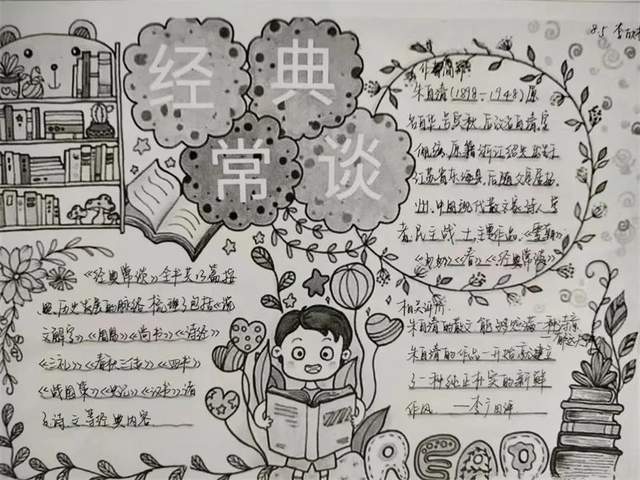 经典
常谈
8.5 李
作者简介
朱自清(1898—1948)原
名自华,号秋实,后改名自清,字
佩弦,原籍浙江绍兴,出生于
江苏省东海县,后随父定居扬
州,中国现代散文家、诗人、学
者、民主战士,主要作品,《雪朝》
《匆匆》《春》《经典常谈》
《经典常谈》全书共13篇,按
照历史发展的脉络梳理了包括《说
文解字》《周易》《尚书》《诗经》
《三礼》《春秋三传》《四书》
《战国策》《史记》《汉书》诸
子、诗文等经典内容
相关评价:
朱自清的散文能够
朱自清的作品一开始就建立
了一种纯正朴实的新鲜
作风 —李广田评
READ